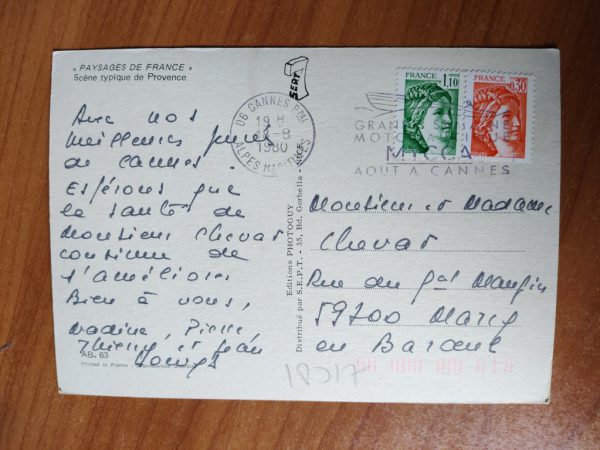 « PAYSAGES DE FRANCE »
Scène typique de Provence
Avec nos
meilleures pensées
de Cannes.
Espérons que
la santé de
Monsieur Chevat
continue de
s'améliorer
Bien à vous,
Nadine, Pierre,
Thierry et Jean
AB. 63
Printed in France
SEPT
Editions PHOTOGUY
Distribué par S.E.P.T. - 35, Bd. Gorbella - NICE
06 CANNES PPAL
19 H
-8
1980
ALPES MARITIMES
FRANCE
1,10
FRANCE
0,30
GRAND
MOTO
MYCCA
AOUT A CANNES
Monsieur et Madame
Chevat
Rue du Gal Mangin
59700 Marcq
en Baroeul
18017